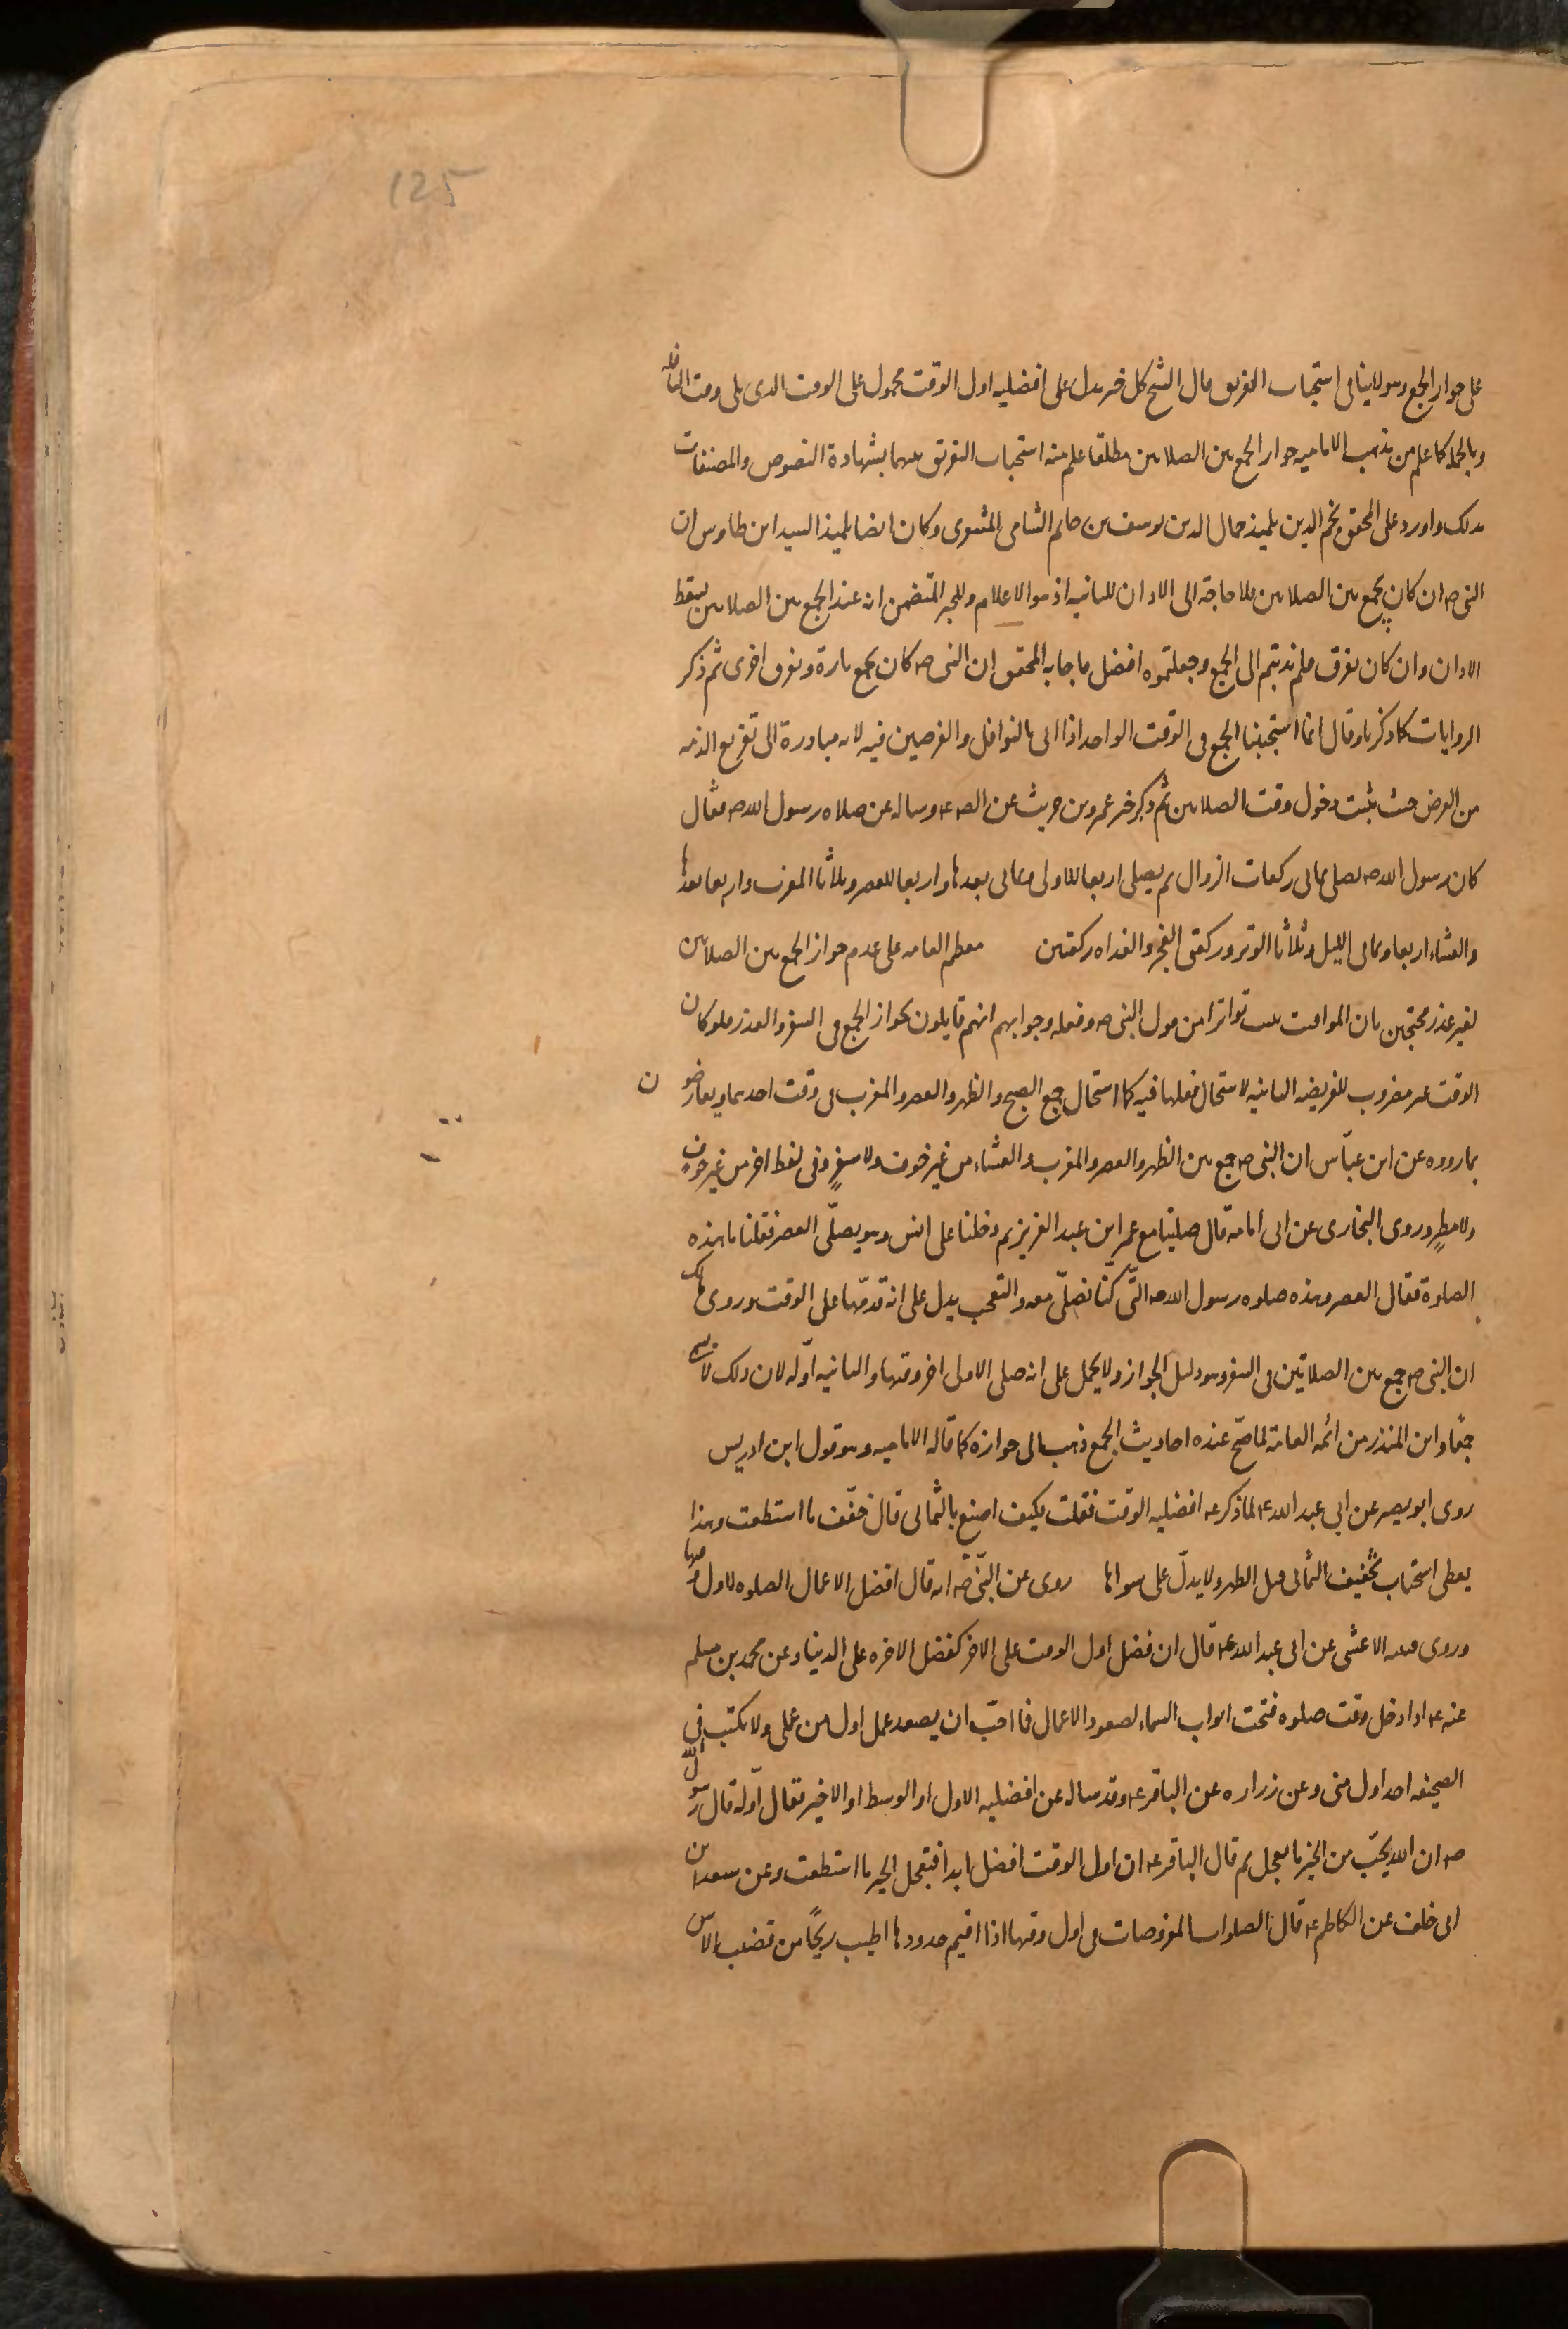 125
على جواز الجمع وهو لا ينافى استحباب التفريق قال الشيخ كل خبر يدل على افضليه اول الوقت محمول على الوقت الذى يلى وقت النافله
وبالجمله كما علم من مذهب الاماميه جواز الجمع بين الصلاتين مطلقا علم منه استحباب التفريق بينهما بشهادة النصوص والمصنفات
بذلك واورد على المحقق نجم الدين تلميذه جمال الدين يوسف بن حاتم الشامى المشغرى وكان ايضا تلميذ السيد ابن طاوس ان
النبى صه ان كان يجمع بين الصلاتين فلا حاجة الى الاذان للثانيه اذ هو الاعلام وللخبر المتضمن انه عند الجمع بين الصلاتين يسقط
الاذان وان كان يفرق فلم ندبتم الى الجمع وجعلتموه افضل فاجابه المحقق ان النبى صه كان يجمع تارة ويفرق اخرى ثم ذكر
الروايات كما ذكرنا وقال انما استحببنا الجمع فى الوقت الواحد اذا اتى بالنوافل والفرضين فيه لانه مبادرة الى تفريغ الذمه
من الفرض حيث ثبت دخول وقت الصلاتين ثم ذكر خبر عمرو بن حريث عن الصه ع وساله عن صلاه رسول الله صه فقال
كان رسول الله صه يصلى ثمانى ركعات الزوال ثم يصلى اربعا للاولى وثمانى بعدها واربعا للعصر وثلاثا المغرب واربعا بعدها
والعشاء اربعا وثمانى الليل وثلاثا الوتر وركعتى الفجر والغداه ركعتين معظم العامه على عدم جواز الجمع بين الصلاتين
لغير عذر محتجين بان المواقيت ثبتت تواترا من قول النبى صه وفعله وجوابهم انهم قايلون بجواز الجمع فى السفر والعذر فلو كان
الوقت غير مضروب للفريضه الثانيه لاستحال فعلها فيه كما استحال جمع الصبح والظهر والعصر والمغرب فى وقت احدهما ويعارضون
بما رووه عن ابن عبّاس ان النبى صه جمع بين الظهر والعصر والمغرب والعشاء من غير خوف ولا سفرٍ وفى لفظ اخر من غير خوفٍ
ولا مطرٍ وروى البخارى عن ابى امامه قال صلينا مع عمر ابن عبد العزيز ثم دخلنا على انس وهو يصلّى العصر فقلنا ما هذه
الصلوة فقال العصر وهذه صلوه رسول الله صه التى كنّا نصلّى معه والتعجب يدل على انه قدمّها على الوقت وروى مالك
ان النبى صه جمع بين الصلاتين فى السفر وهو دليل الجواز ولا يحمل على انه صلى الاولى اخر وقتها والثانيه اوّله لان ذلك لا يسمى
جمعًا وابن المنذر من ائمه العامة لما صحّ عنده احاديث الجمع ذهب الى جوازه كما قاله الاماميه وهو قول ابن ادريس
روى ابو بصير عن ابى عبد الله ع لما ذكر عه افضليه الوقت فقلت كيف اصنع بالثمانى قال خفّف ما استطعت وهذا
يعطى استحباب تخفيف الثمانى قبل الظهر ولا يدلّ على سواها روى عن النبّى صه انه قال افضل الاعمال الصلوه لاول وقتها
وروى قتيبه الاعشى عن ابى عبد الله ع قال ان فضل اول الوقت على الاخر كفضل الاخره على الدينا وعن محمد بن مسلم
عنه ع اذا دخل وقت صلوه فتحت ابواب السماء لصعود الاعمال فما احبّ ان يصعد عمل اول من عملى ولا يكتب فى
الصحيفه احد اول منى وعن زراره عن الباقر ع وقد ساله عن افضليه الاول او الوسط او الاخير فقال اوّله قال رسول الله
صه ان الله يحبّ من الخير ما يعجل ثم قال الباقر ع ان اول الوقت افضل ابدا فتعجل الخير ما استطعت وعن سعد بن
ابى خلف عن الكاظم ع قال الصلوات المفروضات فى اول وقتها اذا اقيم حدودها اطيب ريحًا من قضيب الاس